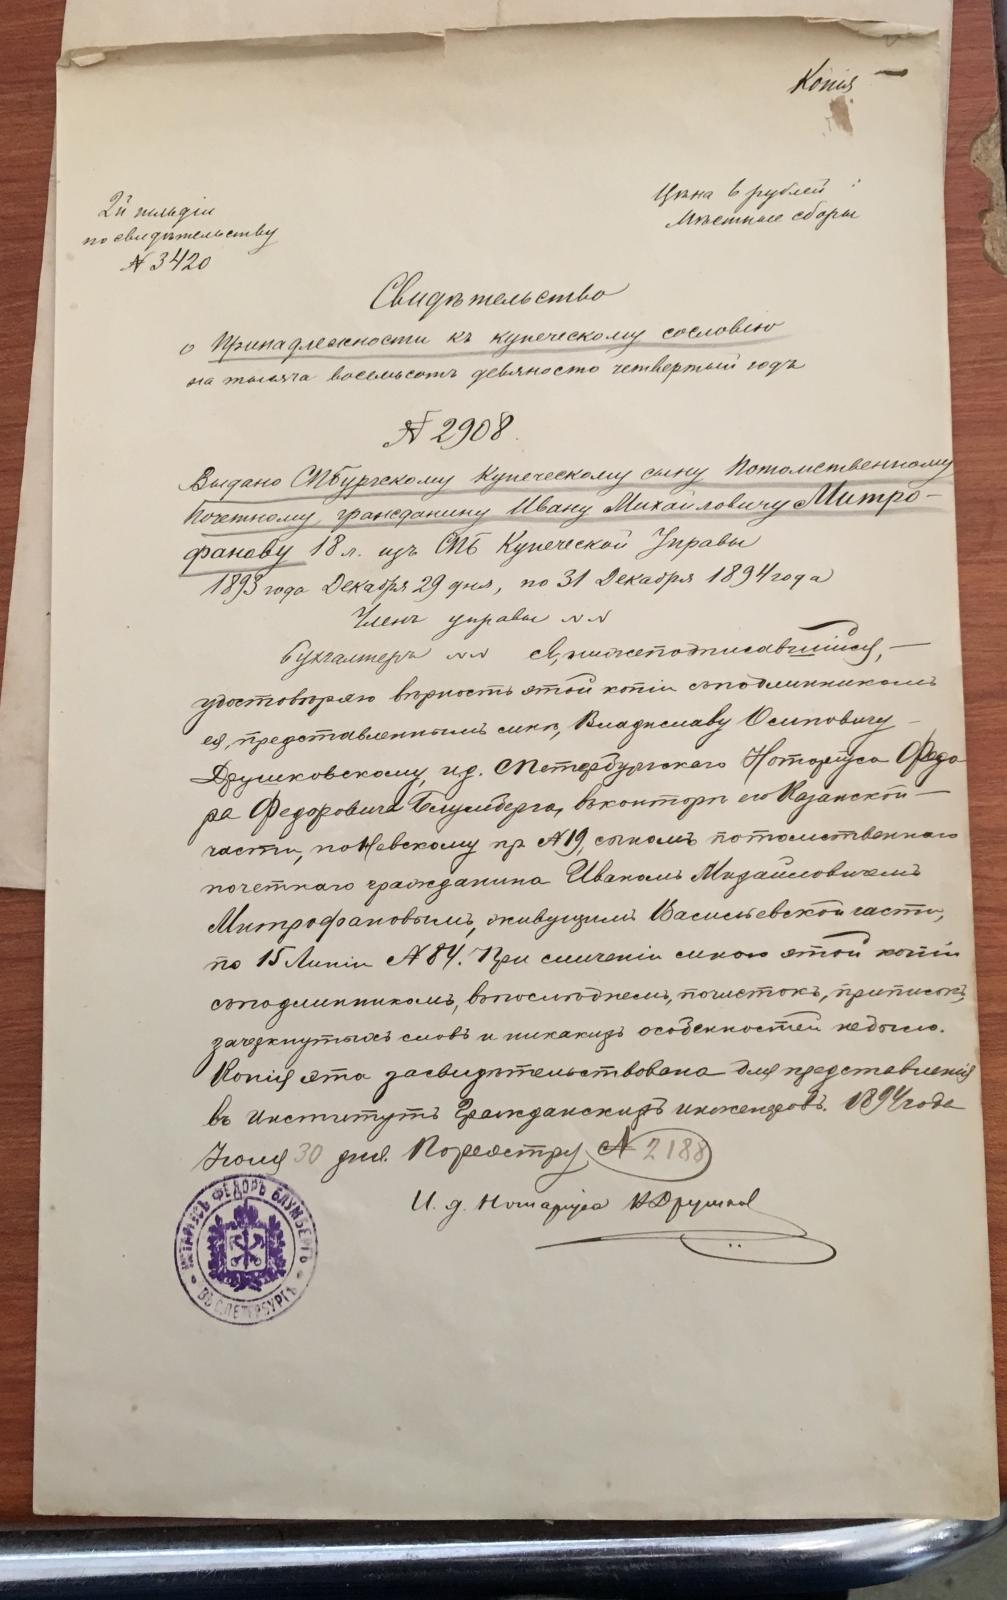 Копія
2й гильдіи
по свидѣтельству
№ 3420
Цѣна 6 рублей
Мѣстные сборы
Свидѣтельство
о принадлежности къ купеческому сословію
на тысяча восемьсотъ девяносто четвертый годъ
№ 2908.
Выдано СПбургскому Купеческому сыну Потомственному
Почетному гражданину Ивану Михайловичу Митро-
фанову 18 л. изъ СПБ Купеческой Управы
1893 года Декабря 29 дня, по 31 Декабря 1894 года
Членъ управы
Бухгалтеръ Я, нижеподписавшійся,
удостовѣряю вѣрность этой копіи съ подлинникомъ
ея, представленнымъ мнѣ, Владиславу Осиповичу
Друшковскому, и.д. СПетербургскаго Нотаріуса Федо
ра Федоровича Блумберга, въ конторѣ его Казанской
части, по Невскому пр. № 19, сыномъ потомственнаго
почетнаго гражданина Иваномъ Михайловичемъ
Митрофановымъ, живущимъ Васильевской части,
по 15 Линіи № 84. При сличеніи мною этой копіи
съ подлинникомъ, въ послѣднемъ, почистокъ, приписокъ,
зачеркнутыхъ словъ и никакихъ особенностей не было.
Копія эта засвидѣтельствована для представленія
въ Институтъ Гражданскихъ инженеровъ. 1894 года
Іюля 30 дня. По реестру № 2188
И. д. Нотаріуса В Друшков
НОТАРІУСЪ ФЕДОРЪ БЛУМБЕРГЪ
ВЪ С.ПЕТЕРБУРГѢ